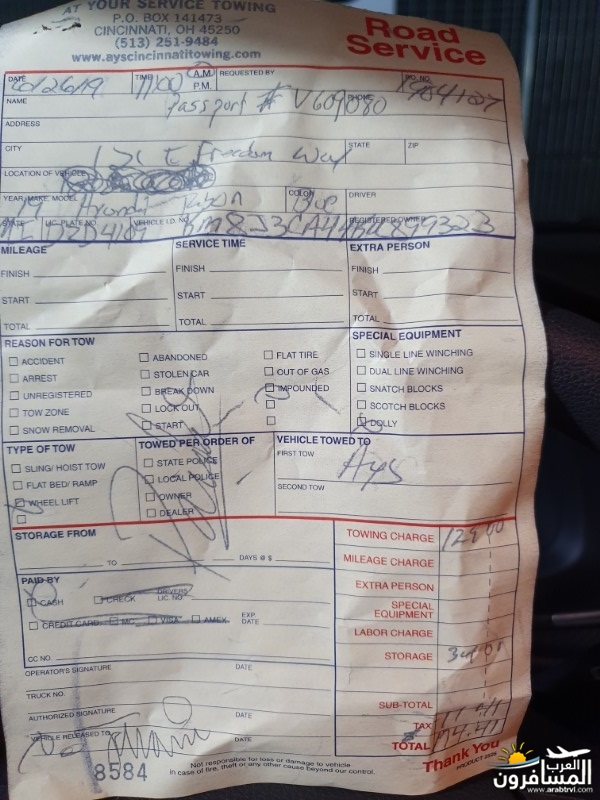 AT YOUR SERVICE TOWING
P.O. BOX 141473
CINCINNATI, OH 45250
(513) 251-9484
www.ayscincinnatitowing.com
Road
Service
DATE 6/26/19 TIME 11:00 A.M. P.M. REQUESTED BY
NAME Passport # V609080 PHONE
ADDRESS
CITY STATE ZIP
E Freedom Way
LOCATION OF VEHICLE
YEAR, MAKE, MODEL COLOR DRIVER
STATE LIC. PLATE NO. VEHICLE I.D. NO. REGISTERED OWNER
MILEAGE SERVICE TIME EXTRA PERSON
FINISH FINISH FINISH
START START START
TOTAL TOTAL TOTAL
REASON FOR TOW SPECIAL EQUIPMENT
ACCIDENT ABANDONED FLAT TIRE SINGLE LINE WINCHING
ARREST STOLEN CAR OUT OF GAS DUAL LINE WINCHING
UNREGISTERED BREAK DOWN IMPOUNDED SNATCH BLOCKS
TOW ZONE LOCK OUT SCOTCH BLOCKS
SNOW REMOVAL START DOLLY
TYPE OF TOW TOWED PER ORDER OF VEHICLE TOWED TO
SLING/ HOIST TOW STATE POLICE FIRST TOW Ays
FLAT BED/ RAMP LOCAL POLICE
WHEEL LIFT OWNER SECOND TOW
DEALER
STORAGE FROM TOWING CHARGE 129 00
TO DAYS @ $ MILEAGE CHARGE
PAID BY EXTRA PERSON
CASH CHECK DRIVERS LIC. NO. SPECIAL EQUIPMENT
CREDIT CARD MC VISA AMEX EXP. DATE LABOR CHARGE
CC NO. STORAGE
OPERATOR'S SIGNATURE DATE
TRUCK NO. SUB-TOTAL
AUTHORIZED SIGNATURE DATE TAX
VEHICLE RELEASED TO DATE TOTAL
8584
Not responsible for loss or damage to vehicle
in case of fire, theft or any other cause beyond our control.
Thank You
العرب
المسافرون
www.arabtrvl.com